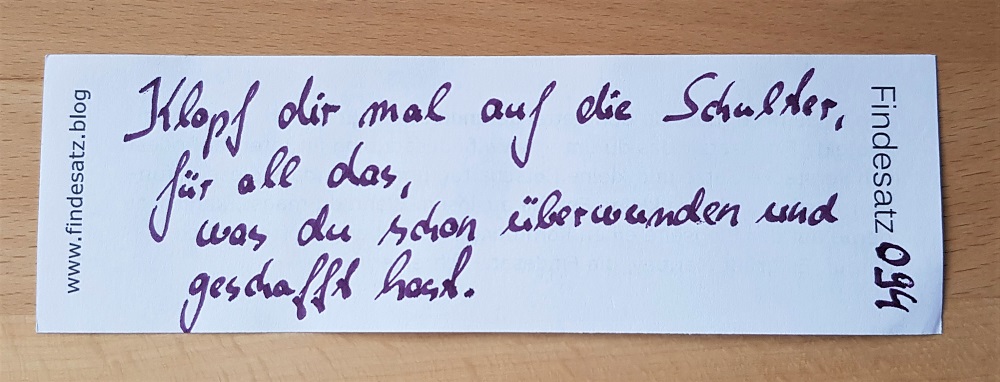 www.findesatz.blog
Klopf dir mal auf die Schulter,
für all das,
was du schon überwunden und
geschafft hast.
Findesatz 094